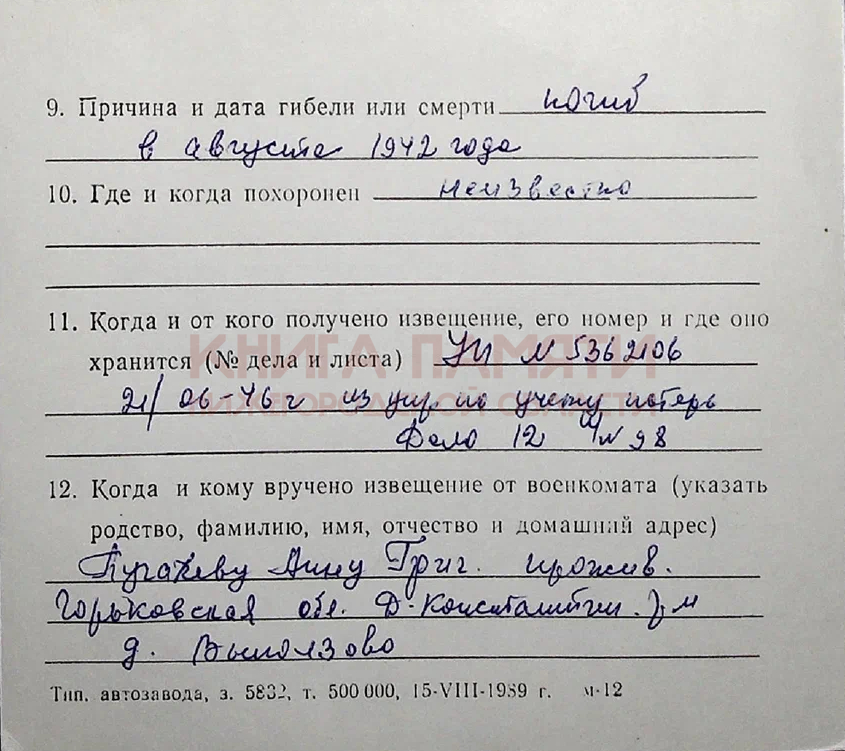 9. Причина и дата гибели или смерти погиб
в августе 1942 года
10. Где и когда похоронен неизвестно
11. Когда и от кого получено извещение, его номер и где оно
хранится (№ дела и листа) УП N 5362106
КНИГА ПАМЯТИ
21/06-46 г из упр по учету потерь
НИЖЕГОРОДСКОЙ ОБЛАСТИ
Дело 12 N 98
12. Когда и кому вручено извещение от военкомата (указать
родство, фамилию, имя, отчество и домашний адрес)
Григ. прожив.
Горьковская обл. Д-Константин. р-н
д. Выползово
Тип. автозавода, з. 5832, т. 500 000, 15-VIII-1989 г. м-12